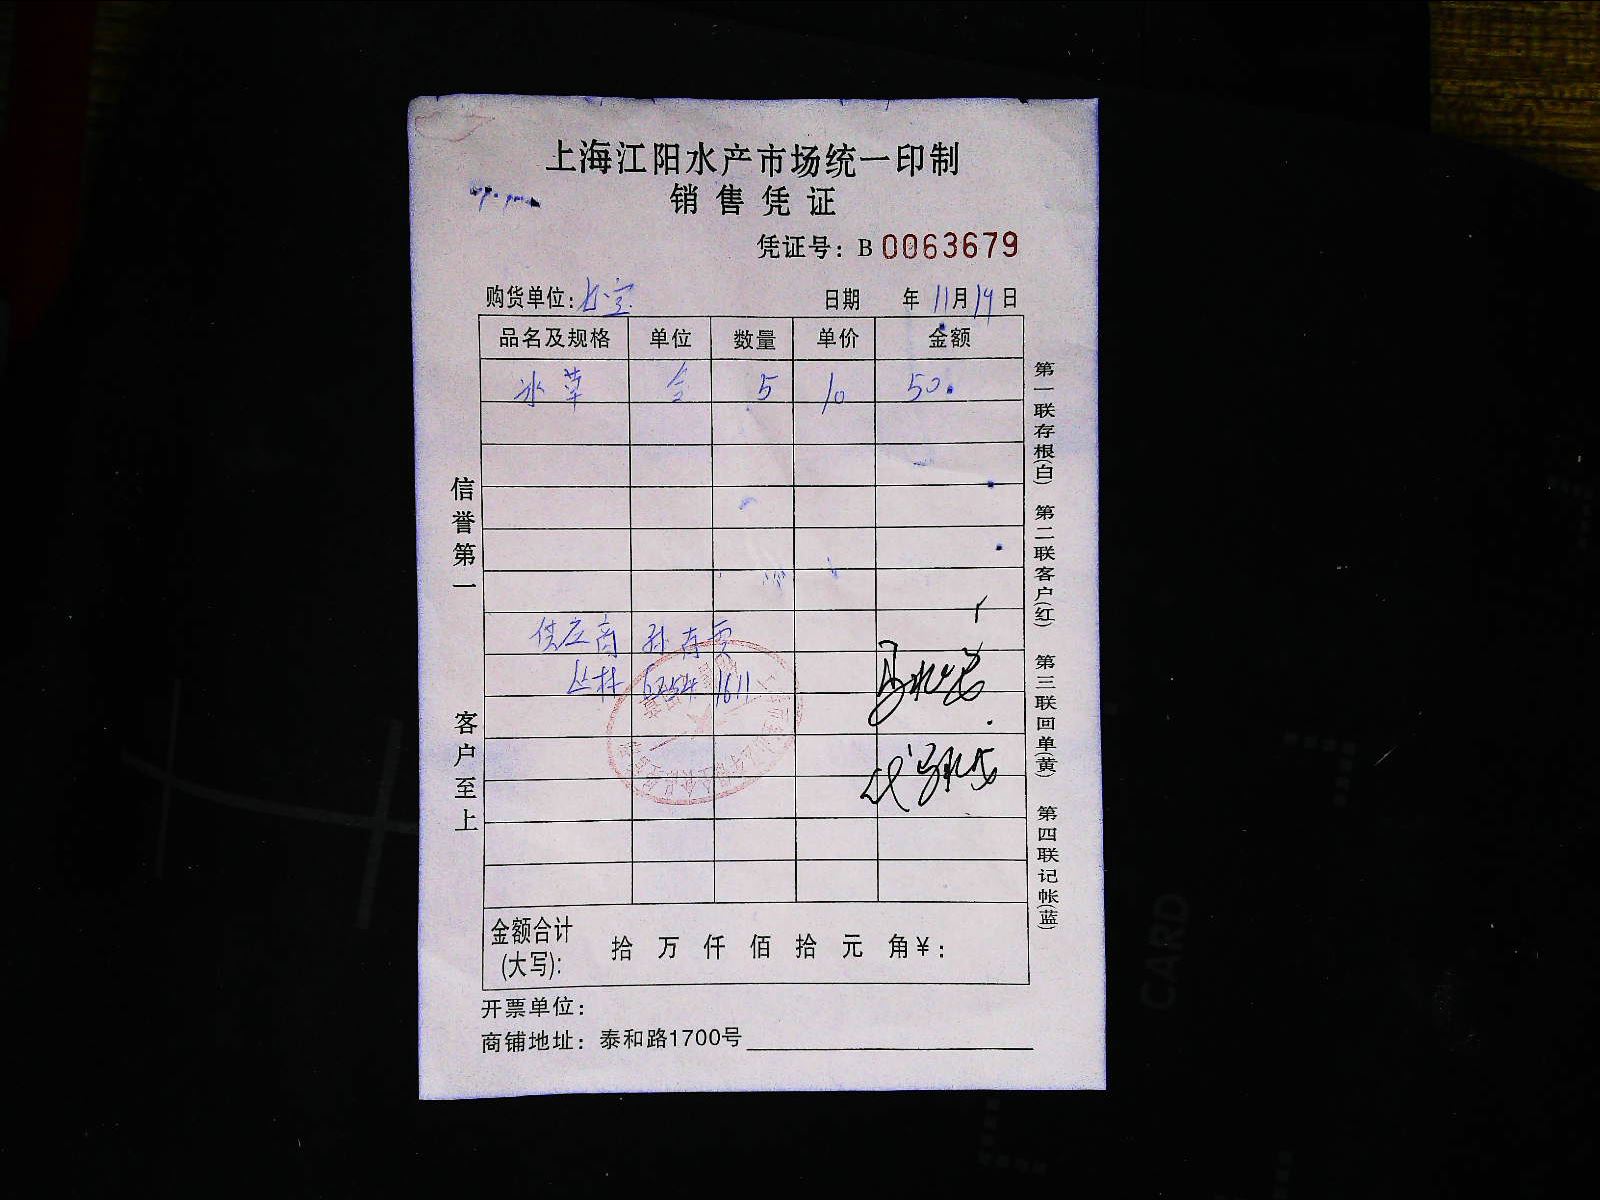 上海江阳水产市场统一印制
销售凭证
凭证号: B 0063679
购货单位: 日期 年 11月14日
品名及规格 单位 数量 单价 金额
冰草 5 10 50.
供应商 孙
丛林 6254 1611
信誉第一 客户至上
第一联存根(白) 第二联客户(红) 第三联回单(黄) 第四联记帐(蓝)
金额合计(大写): 拾 万 仟 佰 拾 元 角 ¥:
开票单位:
商铺地址: 泰和路1700号